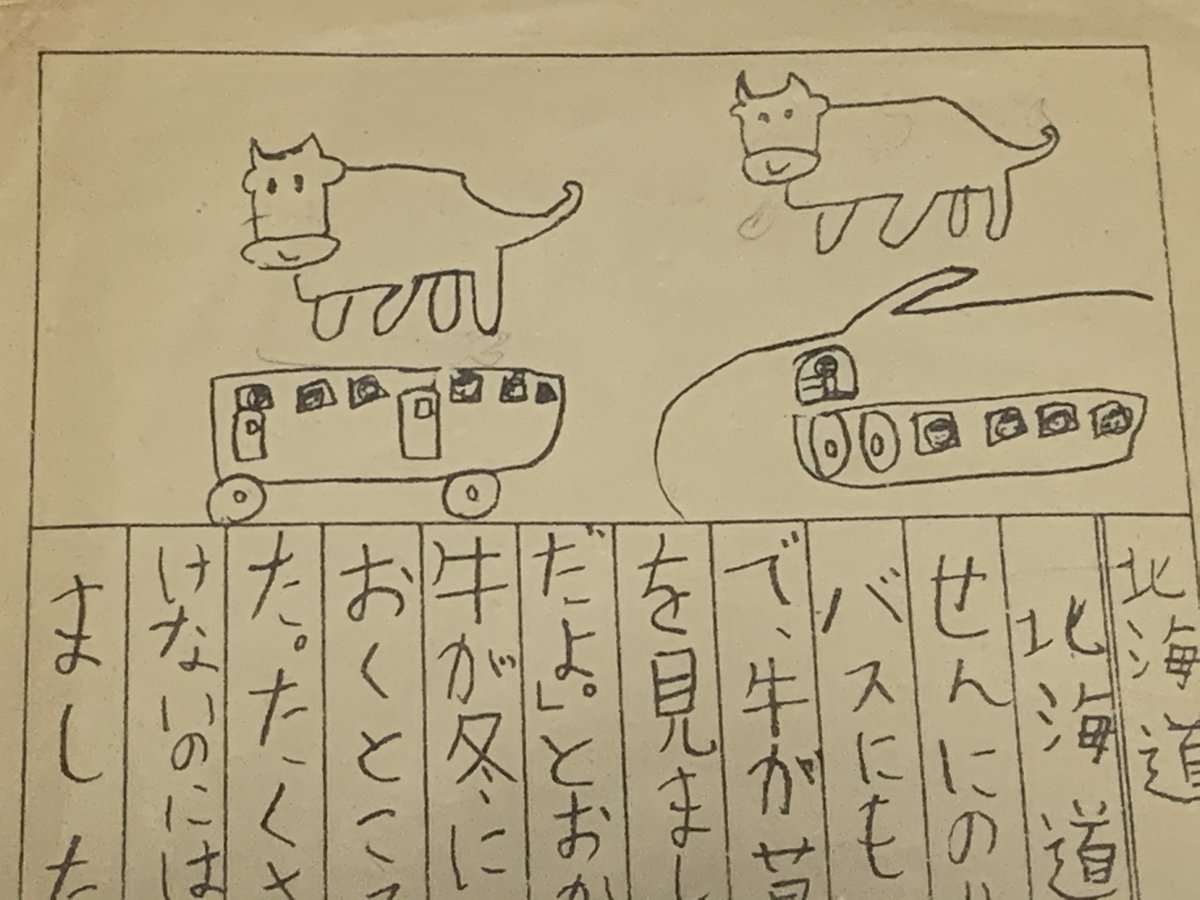 北海道
北海道
せんにの
バスにも
で、牛が草
を見まし
だよ。」とおか
牛が冬に
おくところ
た。たくさ
けないのには
ました